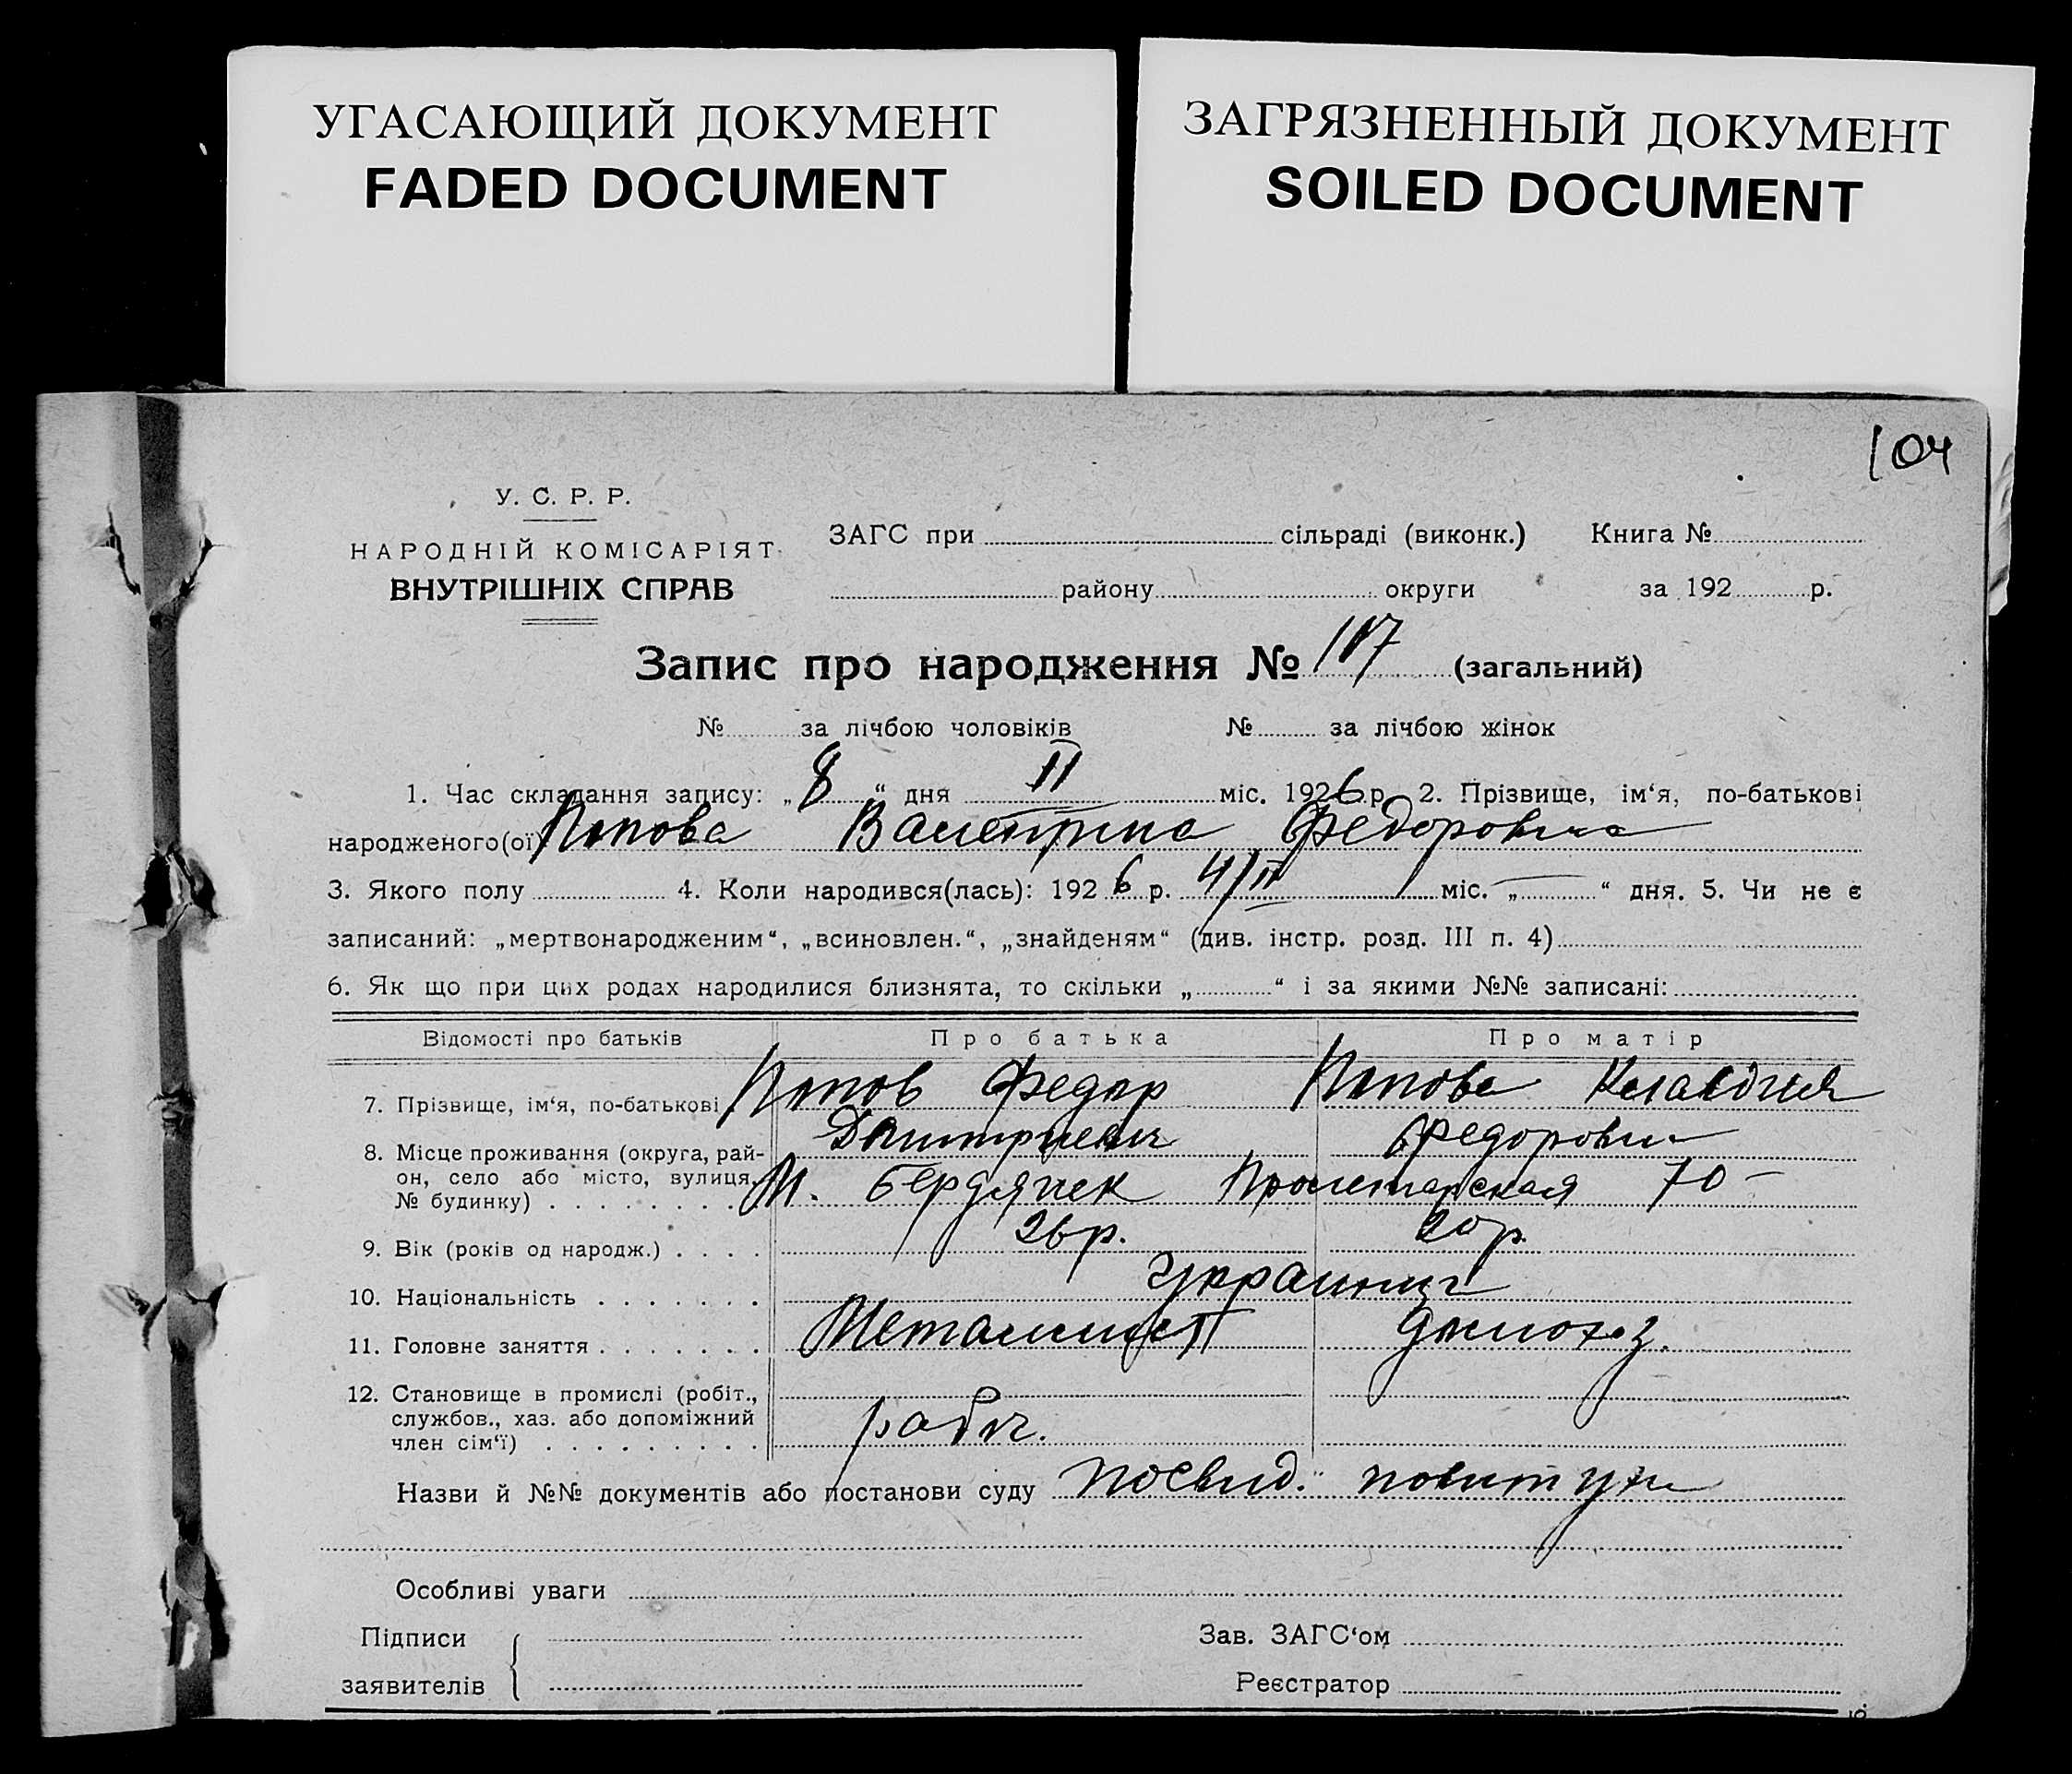 УГАСАЮЩИЙ ДОКУМЕНТ
FADED DOCUMENT
ЗАГРЯЗНЕННЫЙ ДОКУМЕНТ
SOILED DOCUMENT
104
У. С. Р. Р.
НАРОДНІЙ КОМІСАРІЯТ
ВНУТРІШНІХ СПРАВ
ЗАГС при сільраді (виконк.) Книга №
району округи за 192 р.
Запис про народження № 107 (загальний)
№ за лічбою чоловіків № за лічбою жінок
1. Час складання запису: „8“ дня II міс. 1926 р. 2. Прізвище, ім‘я, по-батькові
народженого(ої) Попова Валентина Федоровна
3. Якого полу 4. Коли народився(лась): 1926 р. 4/II міс. „ “ дня. 5. Чи не є
записаний: „мертвонародженим“, „всиновлен.“, „знайденям“ (див. інстр. розд. III п. 4)
6. Як що при цих родах народилися близнята, то скільки „ “ і за якими №№ записані:
Відомості про батьків Про батька Про матір
7. Прізвище, ім‘я, по-батькові Попов Федор Попова Клавдия
Дмитриевич Федоровн
8. Місце проживання (округа, рай-
он, село або місто, вулиця, М. Бердянск Пролетарская 70 –
№ будинку)
9. Вік (років од народж.) 26 р. 20 р.
10. Національність украинц
11. Головне заняття Металлист домохоз.
12. Становище в промислі (робіт.,
службов., хаз. або допоміжний рабоч.
член сім‘ї)
Назви й №№ документів або постанови суду посвид. повитухи
Особливі уваги
Підписи Зав. ЗАГС‘ом
заявителів Реєстратор